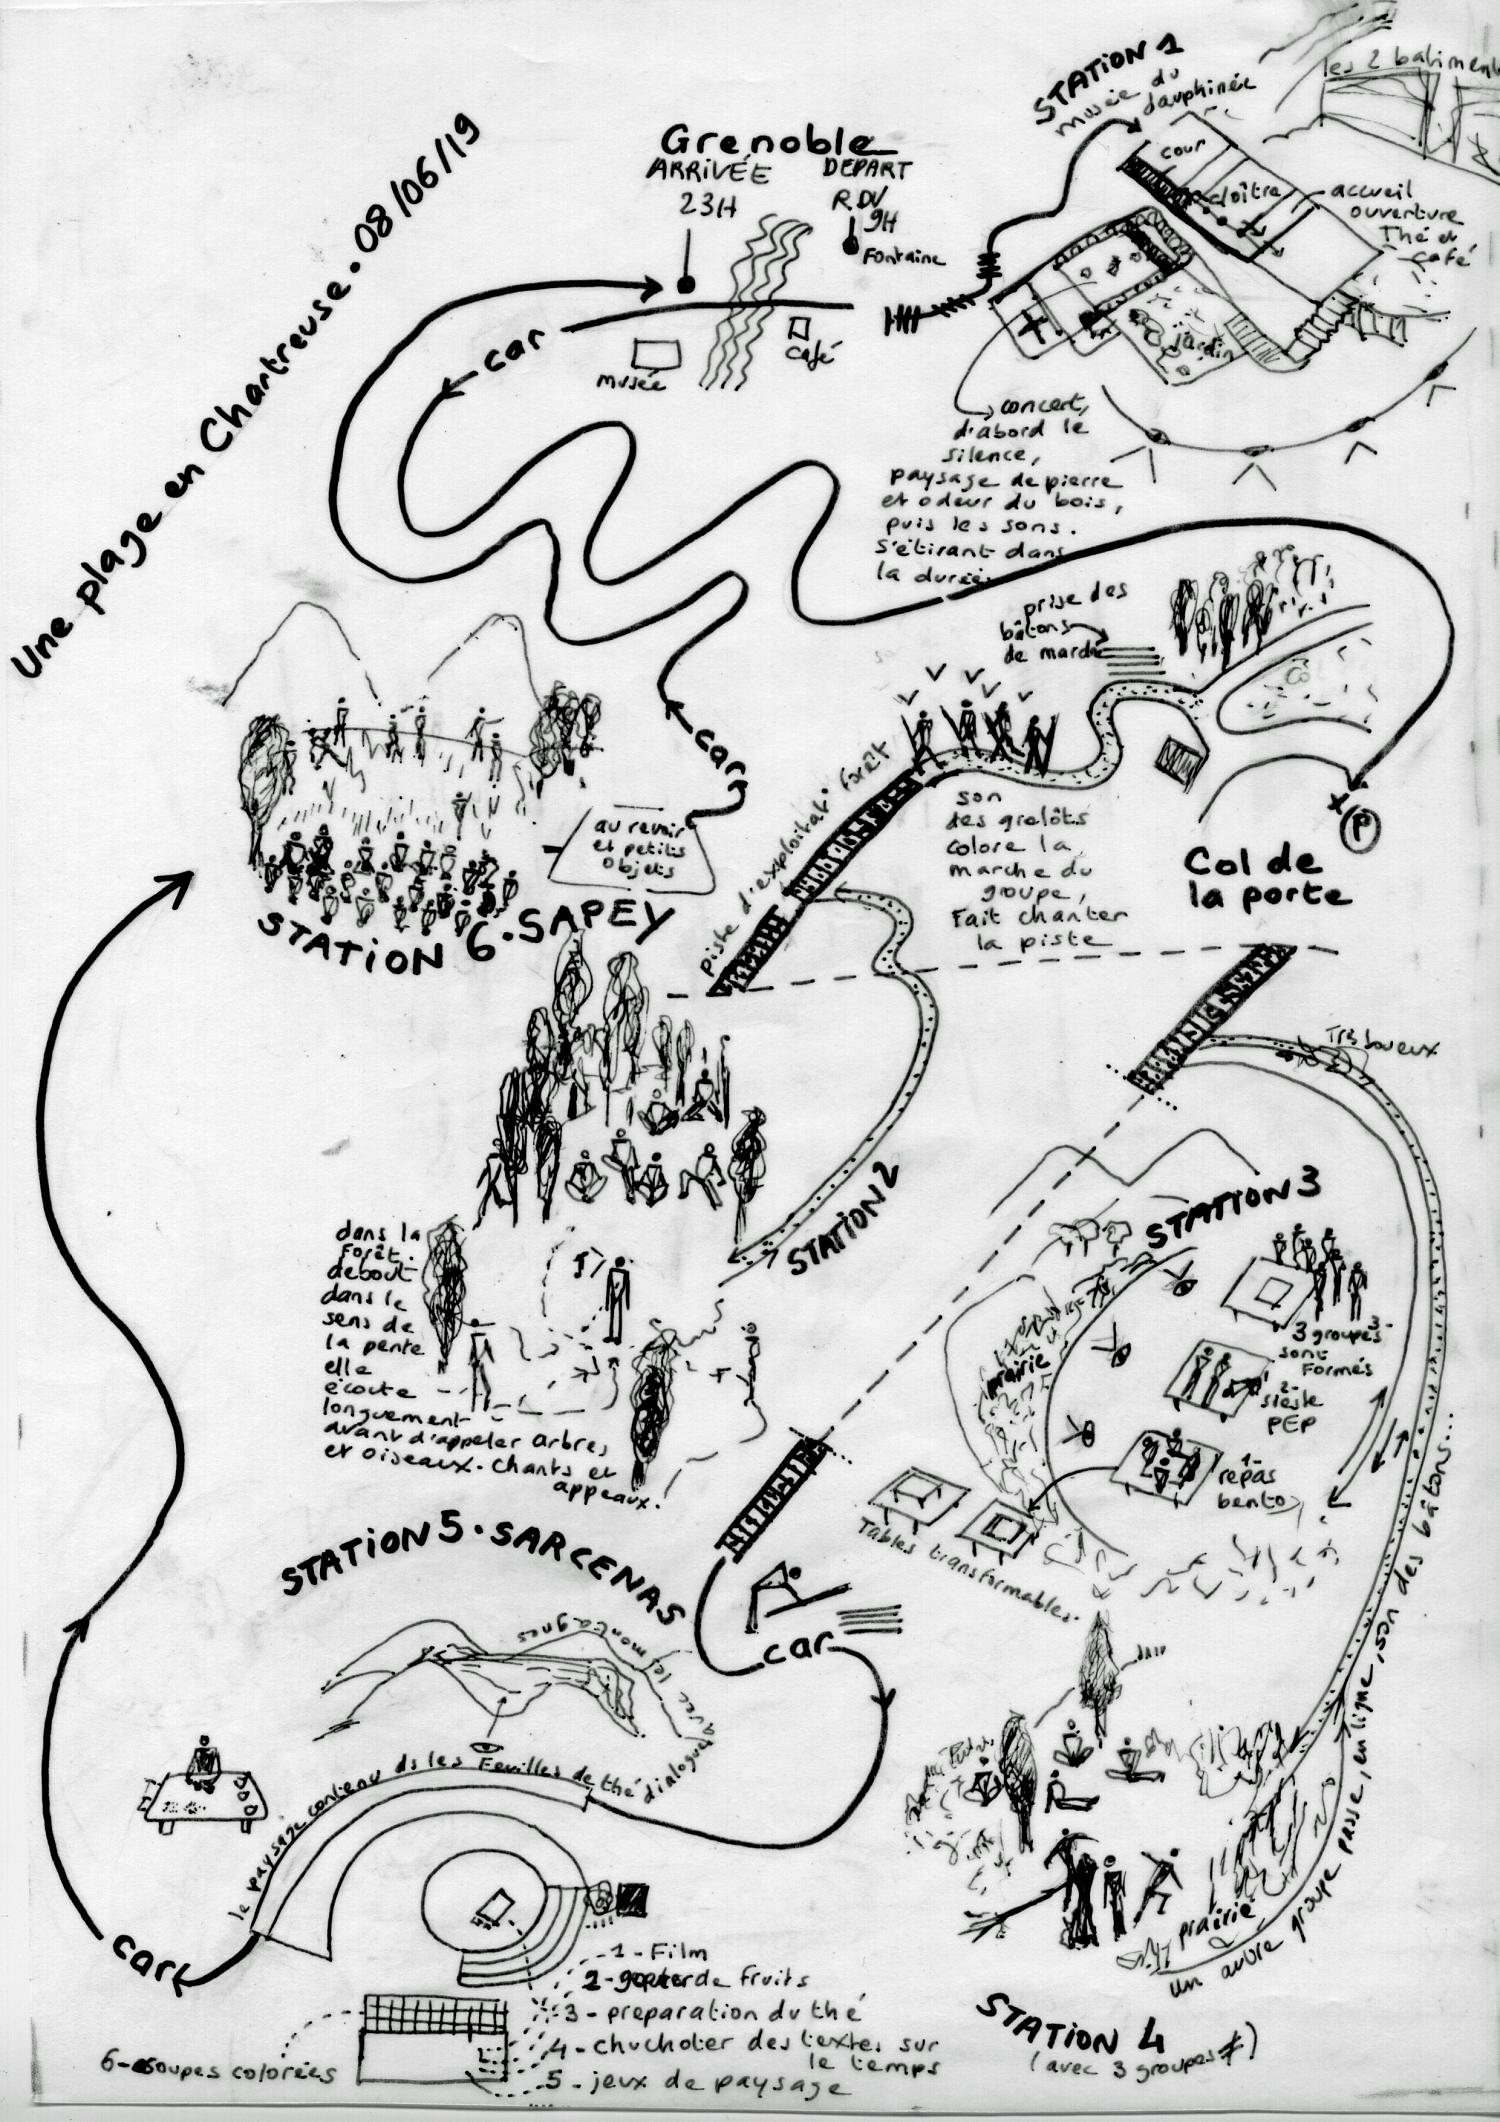 Une plage en Chartreuse • 08/06/19
Grenoble
ARRIVÉE
23H
DEPART
R.DV
9H
Fontaine
car
musée
café
STATION 1
musée du
dauphinée
les 2 batiments
cour
cloître
accueil
ouverture
Thé et
café
jardin
concert,
d'abord le
silence,
paysage de pierre
et odeur du bois,
puis les sons.
s'étirant dans
la durée.
prise des
bâtons
de marche
P
Col de
la porte
piste d'exploitat° forêt
son
des grelôts
colore la
marche du
groupe,
Fait chanter
la piste
car
au revoir
et petits
objets
STATION 6 • SAPEY
Très boueux
STATION 2
dans la
Forêt.
debout
dans le
sens de
la pente
elle
écoute
longuement
avant d'appeler arbres
et oiseaux. chants et
appeaux.
STATION 3
prairie
3-
3 groupes
sont
Formés
2-
sieste
PEP
1-
repas
bento
Tables transformables.
un autre groupe passe, en ligne, son des bâtons...
prairie
STATION 4
(avec 3 groupes ≠)
car
STATION 5 • SARCENAS
le paysage contenu ds les Feuilles de thé dialogue
avec les montagnes
car
1 - Film
2 - gouter de fruits
3 - preparation du thé
4 - chuchoter des textes sur
le temps
5 - jeux de paysage
6 - soupes colorées